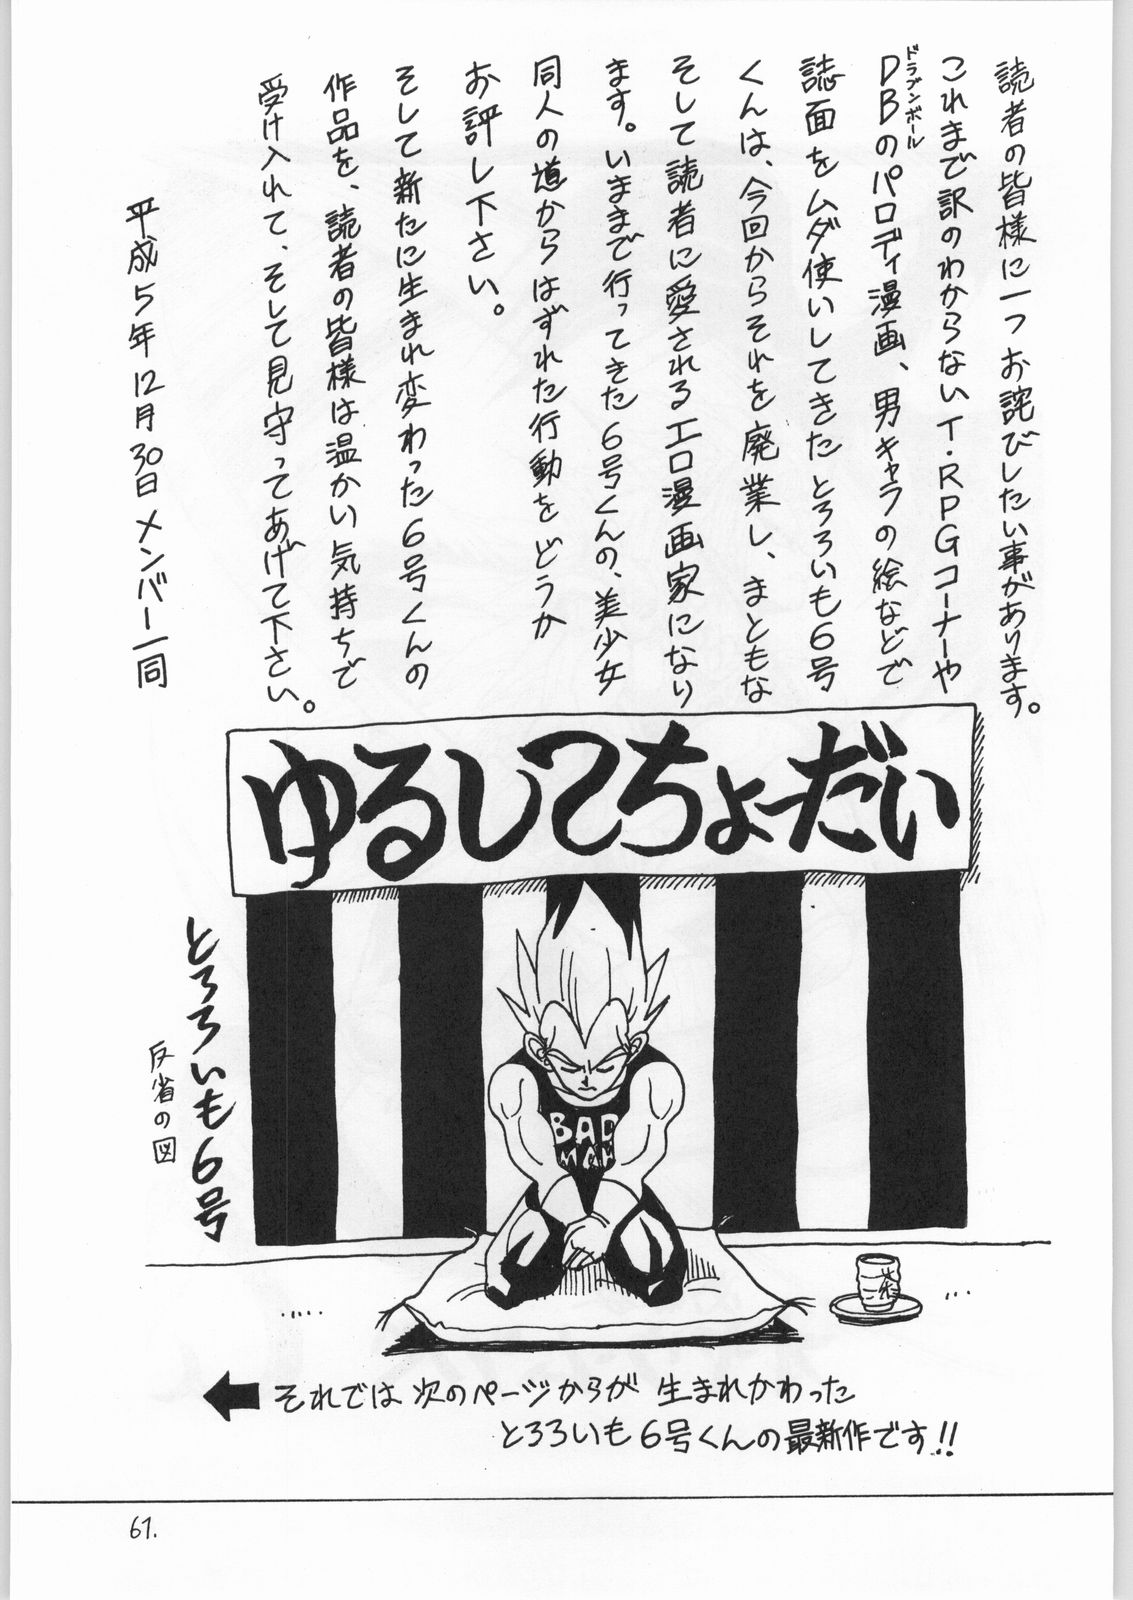 読者の皆様に一つお詫びしたい事があります。
これまで訳のわからないT・RPGコーナーや
ドラゴンボール
DBのパロディ漫画、男キャラの絵などで
誌面をムダ使いしてきたとろろいも6号
くんは、今回からそれを廃業し、まともな
そして読者に愛されるエロ漫画家になり
ます。いままで行ってきた6号くんの、美少女
同人の道からはずれた行動をどうか
お許し下さい。
そして新たに生まれ変わった6号くんの
作品を、読者の皆様は温かい気持ちで
受け入れて、そして見守ってあげて下さい。
平成5年12月30日 メンバー一同
ゆるしてちょーだい
とろろいも6号
反省の図
BAD
MAN
茶
.....
...
それでは次のページからが生まれかわった
とろろいも6号くんの最新作です!!
61.